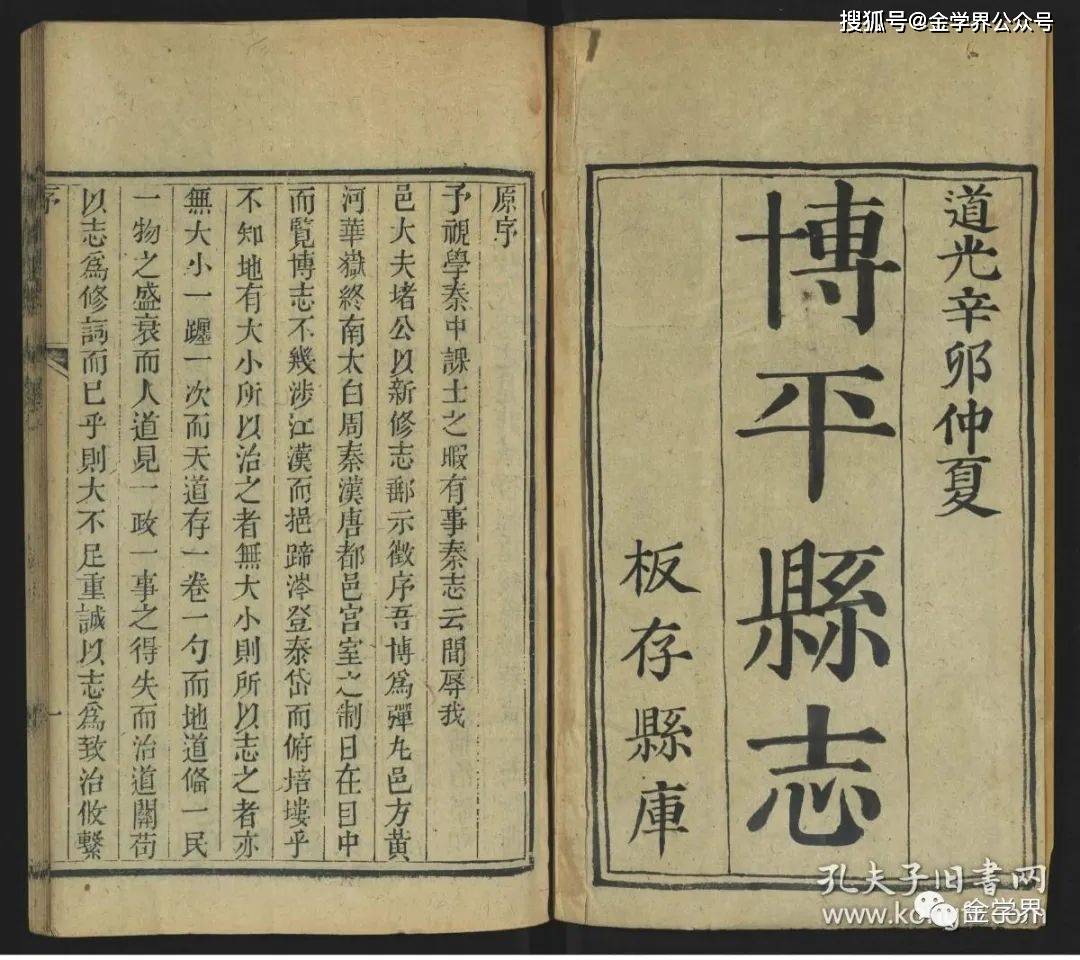 搜狐号@金学界公众号
道光辛卯仲夏
博平縣志
板存縣庫
原序
予視學秦中課士之暇有事秦志云間辱我
邑大夫堵公以新修志郵示徵序吾博爲彈丸邑方黃
河華嶽終南太白周秦漢唐都邑宮室之制日在目中
而覽博志不幾涉江漢而挹蹄涔登泰岱而俯培塿乎
不知地有大小所以治之者無大小則所以志之者亦
無大小一躔一次而天道存一卷一勺而地道備一民
一物之盛衰而人道見一政一事之得失而治道關苟
以志爲修詞而已乎則大不足重誠以志爲致治攸繫
序
一
孔夫子旧书网
金学界